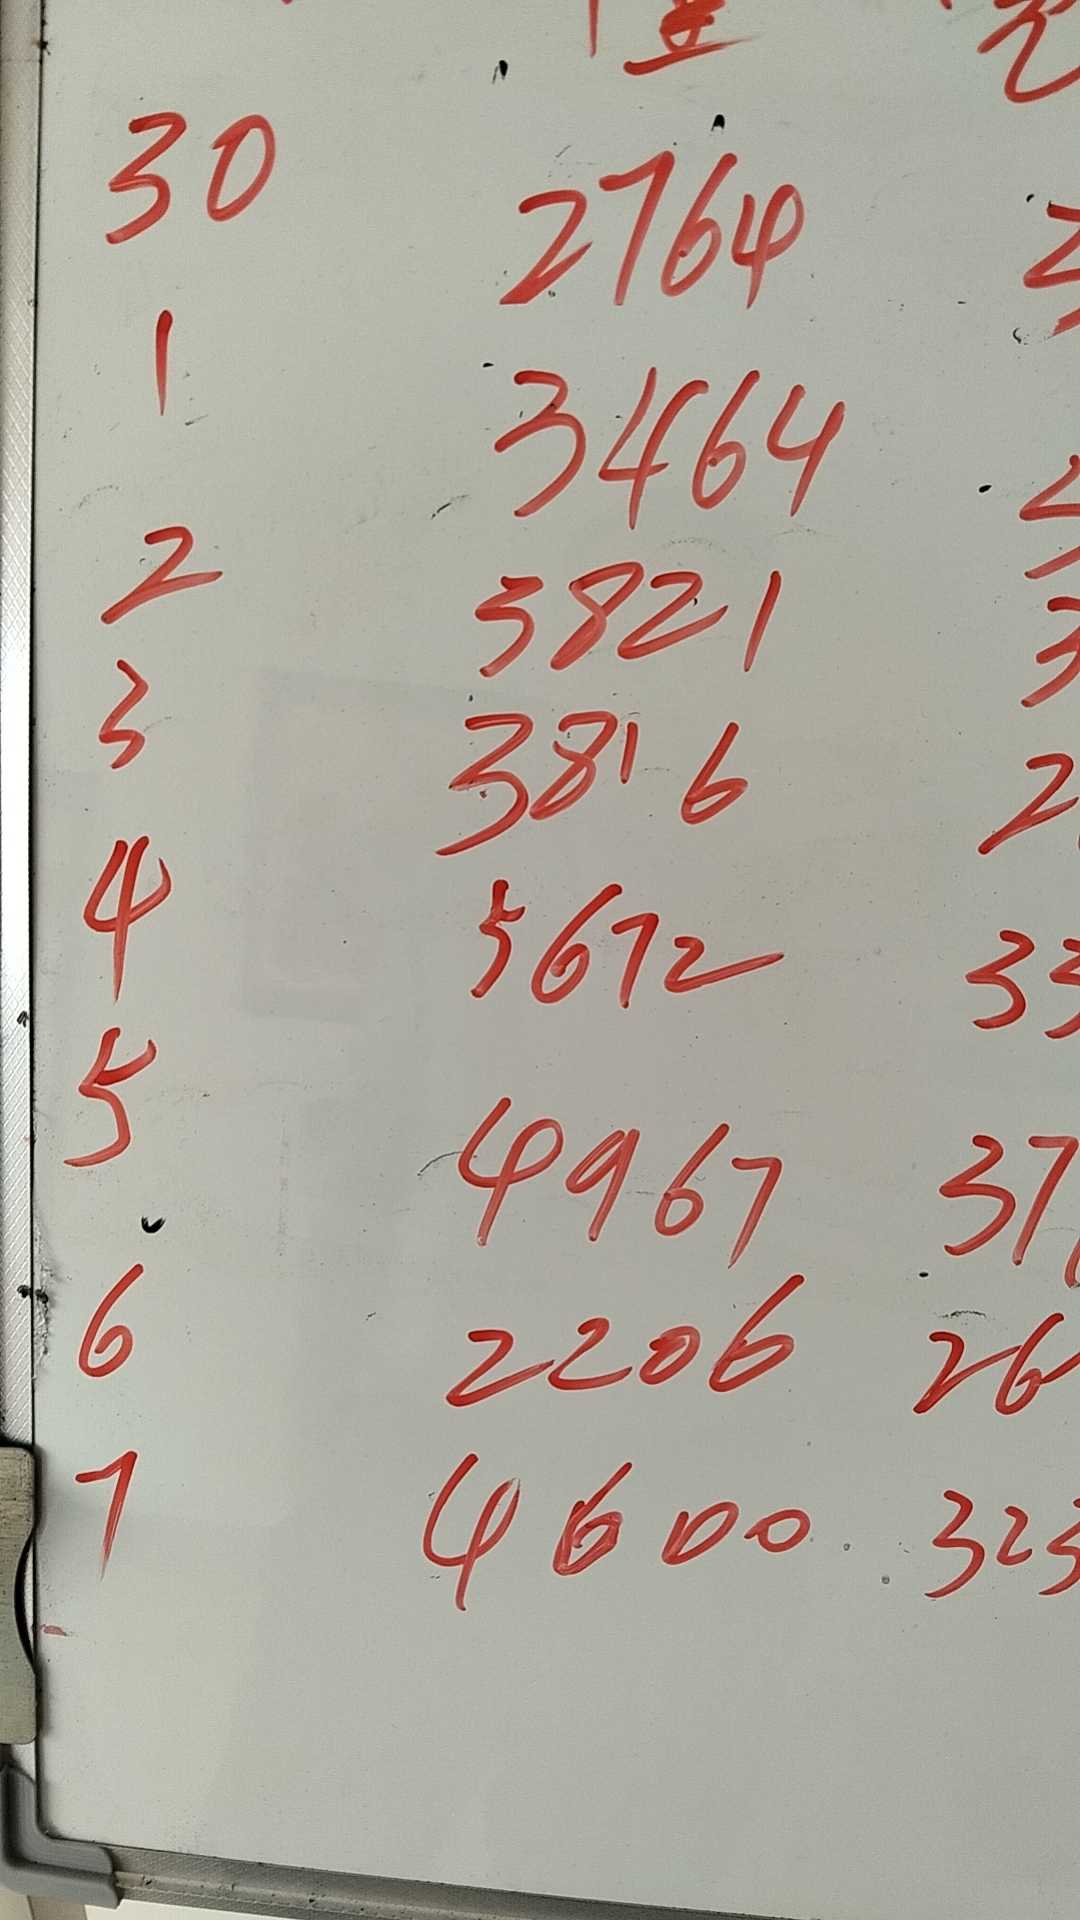 30 2764
1 3464
2 3821
3 3816
4 5672
5 4967 37
6 2206 26
7 4600 323